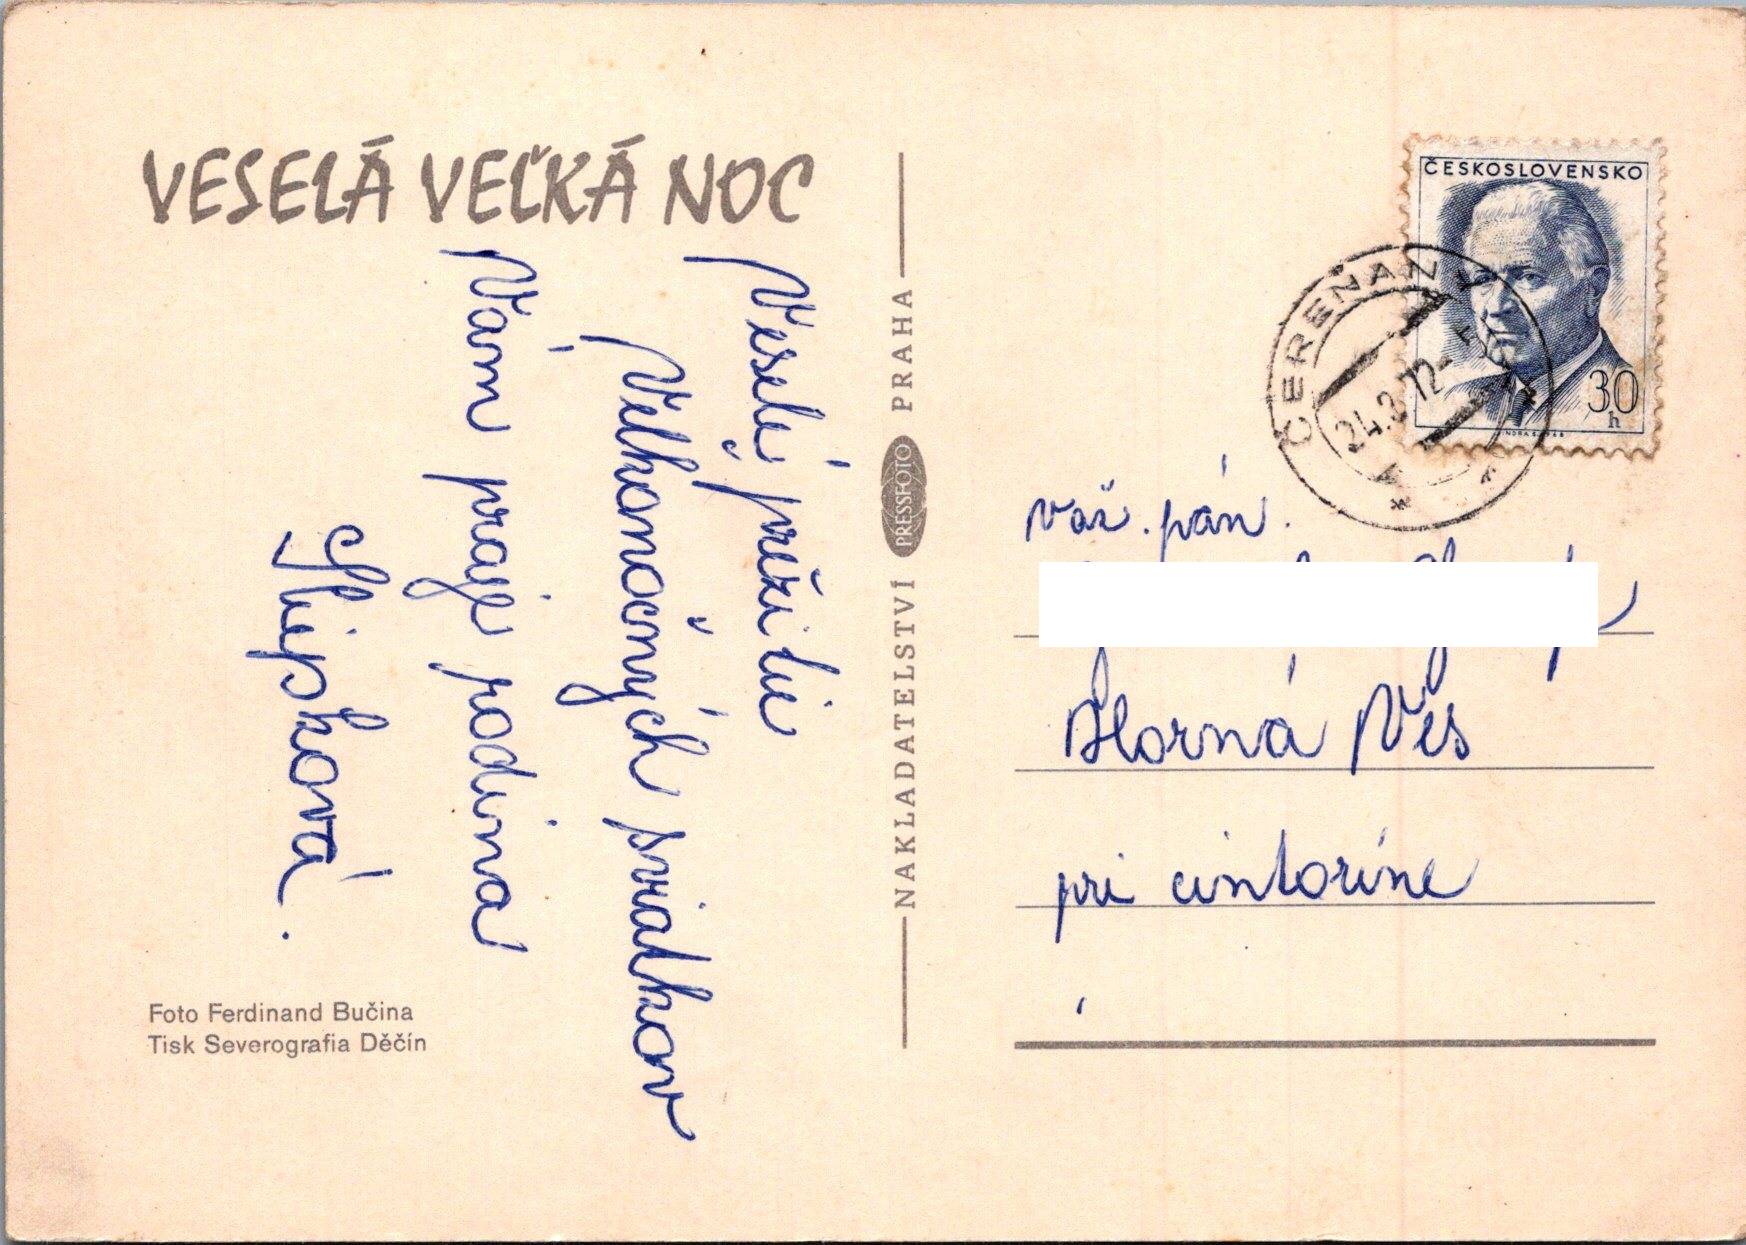 VESELÁ VEĽKÁ NOC
Veselé prežitie
Veľkonočných sviatkov
Vám praje rodina
Slepková.
Foto Ferdinand Bučina
Tisk Severografia Děčín
NAKLADATELSTVÍ PRESSFOTO PRAHA
ČESKOSLOVENSKO
30
h
ČEREŇANY
24.3.72
váž. pán.
Horná Ves
pri cintoríne